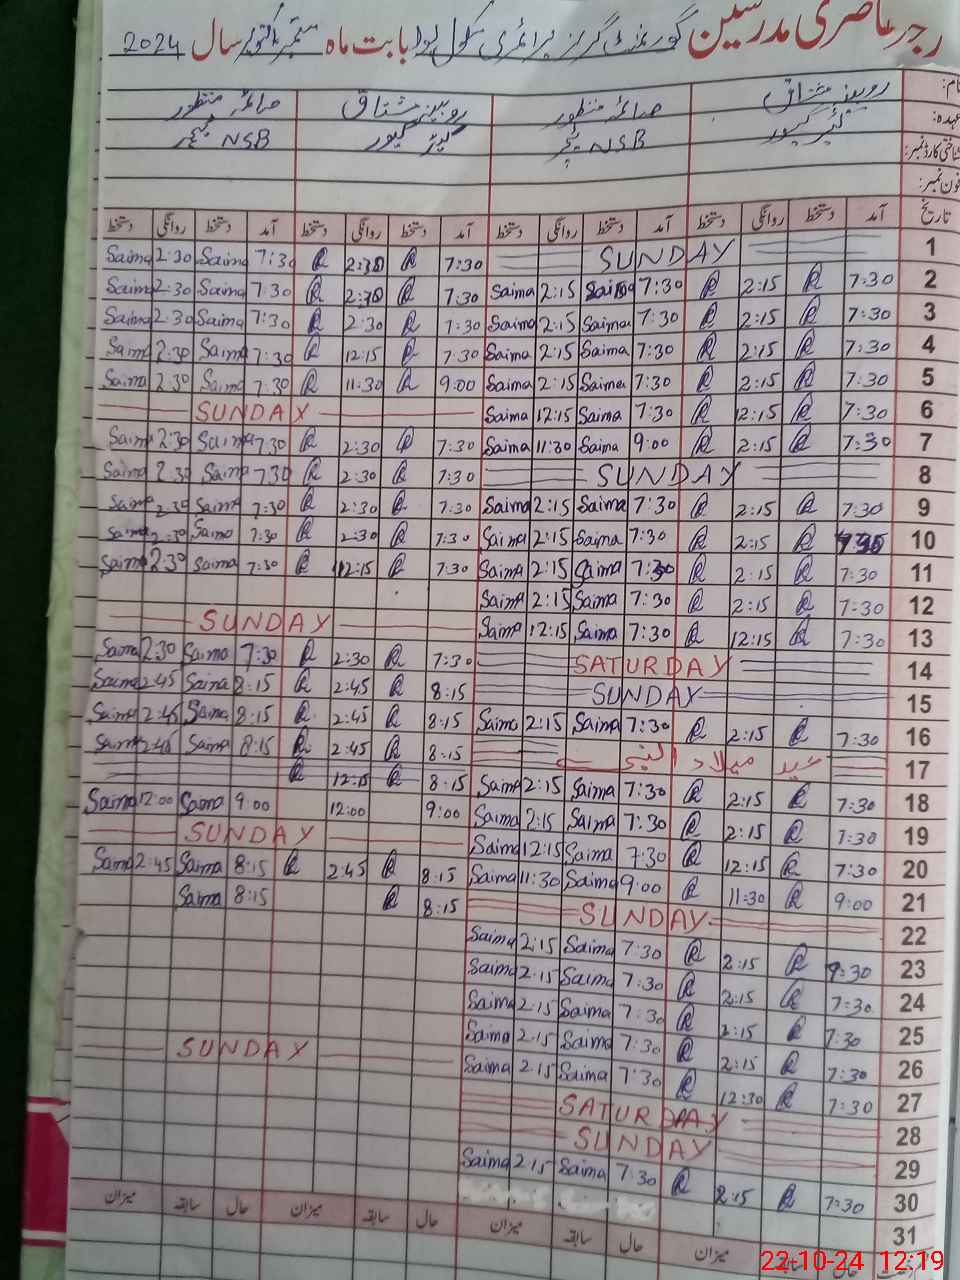 رجسٹر حاضری مدرسین گورنمنٹ گرلز پرائمری سکول بابت ماہ ستمبر اکتوبر سال 2024
نام: روبینہ مشتاق صائمہ منظور روبینہ مشتاق صائمہ منظور
عہدہ: کیئر گیور NSB ٹیچر کیئر گیور NSB ٹیچر
شناختی کارڈ نمبر:
فون نمبر:
تاریخ آمد دستخط روانگی دستخط آمد دستخط روانگی دستخط آمد دستخط روانگی دستخط آمد دستخط روانگی دستخط
1 SUNDAY 7:30 R 2:30 R 7:30 Saima 2:30 Saima
2 7:30 R 2:15 R 7:30 Saima 2:15 Saima 7:30 R 2:30 R 7:30 Saima 2:30 Saima
3 7:30 R 2:15 R 7:30 Saima 2:15 Saima 7:30 R 2:30 R 7:30 Saima 2:30 Saima
4 7:30 R 2:15 R 7:30 Saima 2:15 Saima 7:30 R 12:15 R 7:30 Saima 2:30 Saima
5 7:30 R 2:15 R 7:30 Saima 2:15 Saima 9:00 R 11:30 R 7:30 Saima 2:30 Saima
6 7:30 R 12:15 R 7:30 Saima 12:15 Saima SUNDAY
7 7:30 R 2:15 R 9:00 Saima 11:30 Saima 7:30 R 2:30 R 7:30 Saima 2:30 Saima
8 SUNDAY 7:30 R 2:30 R 7:30 Saima 2:30 Saima
9 7:30 R 2:15 R 7:30 Saima 2:15 Saima 7:30 R 2:30 R 7:30 Saima 2:30 Saima
10 R 2:15 R 7:30 Saima 2:15 Saima 7:30 R 2:30 R 7:30 Saima 2:30 Saima
11 7:30 R 2:15 R 7:30 Saima 2:15 Saima 7:30 R 12:15 R 7:30 Saima 2:30 Saima
12 7:30 R 2:15 R 7:30 Saima 2:15 Saima
13 7:30 R 12:15 R 7:30 Saima 12:15 Saima SUNDAY
14 SATURDAY 7:30 R 2:30 R 7:30 Saima 2:30 Saima
15 SUNDAY 8:15 R 2:45 R 8:15 Saima 2:45 Saima
16 7:30 R 2:15 R 7:30 Saima 2:15 Saima 8:15 R 2:45 R 8:15 Saima 2:45 Saima
17 عید میلاد النبی 8:15 R 2:45 R 8:15 Saima 2:45 Saima
18 7:30 R 2:15 R 7:30 Saima 2:15 Saima 8:15 R 12:15 R
19 7:30 R 2:15 R 7:30 Saima 2:15 Saima 9:00 12:00 9:00 Saima 12:00 Saima
20 7:30 R 12:15 R 7:30 Saima 12:15 Saima SUNDAY
21 9:00 R 11:30 R 9:00 Saima 11:30 Saima 8:15 R 2:45 R 8:15 Saima 2:45 Saima
22 SUNDAY 8:15 R 8:15 Saima
23 9:30 R 2:15 R 7:30 Saima 2:15 Saima
24 7:30 R 2:15 R 7:30 Saima 2:15 Saima
25 7:30 R 2:15 R 7:30 Saima 2:15 Saima
26 7:30 R 2:15 R 7:30 Saima 2:15 Saima
27 7:30 R 12:30 R 7:30 Saima 2:15 Saima SUNDAY
28 SATURDAY
29 SUNDAY
30 7:30 R 2:15 R 7:30 Saima 2:15 Saima
31
حال سابقہ میزان حال سابقہ میزان حال سابقہ میزان حال سابقہ میزان
22-10-24 12:19